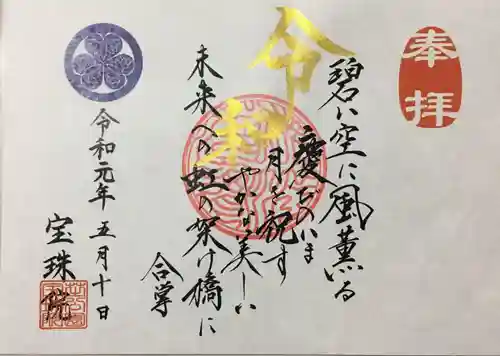 奉拝
令和
碧い空に風薫る
慶びのいま
月を祝す
やかな美しい
未来への虹の架け橋に
合掌
令和元年五月十日
宝珠院